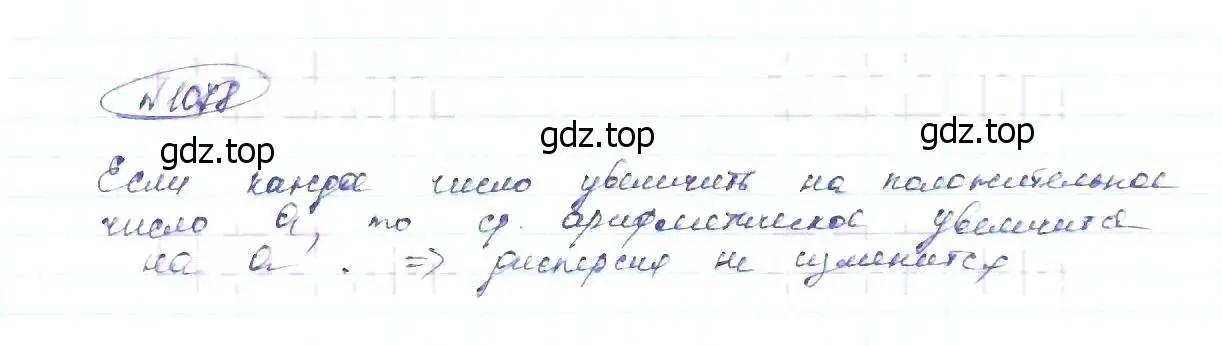 №1078
gdz.top gdz.top gdz.top
Если каждое число увеличить на положительное
число a, то ср. арифметическое увеличится
на a. => дисперсия не изменится